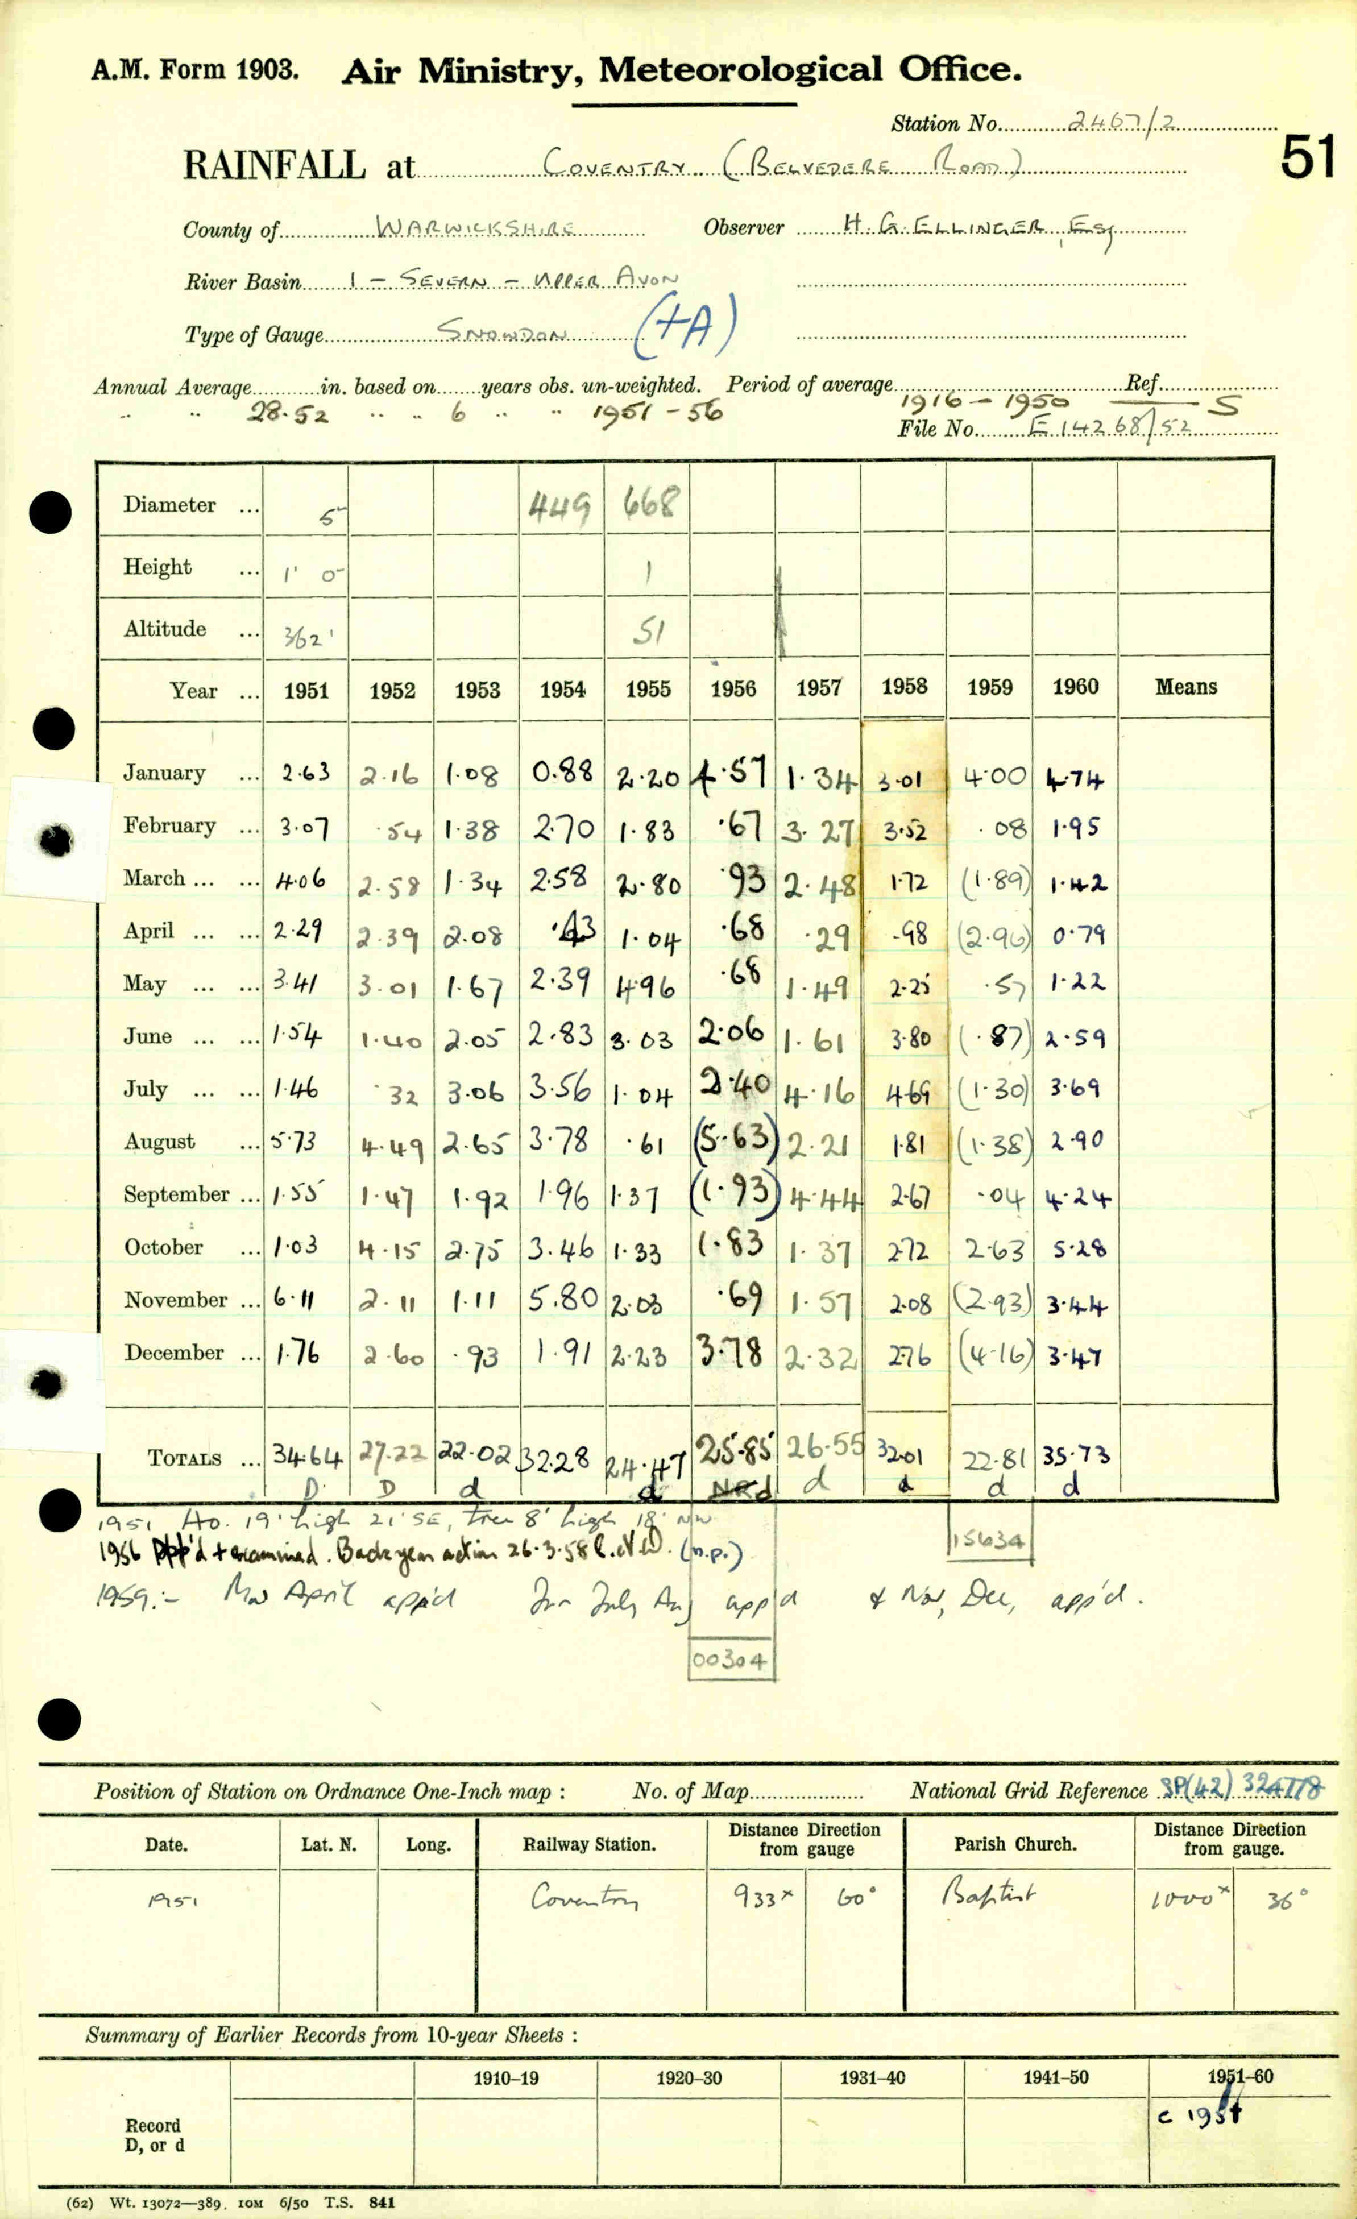 A.M. Form 1903. Air Ministry, Meteorological Office.
Station No. 2467/2
51
RAINFALL at COVENTRY (BELVEDERE ROAD)
County of WARWICKSHIRE Observer H. G. ELLINGER, Esq
River Basin 1 - SEVERN - UPPER AVON
Type of Gauge SNOWDON (+A)
Annual Average in. based on years obs. un-weighted. Period of average Ref.
" " 28.52 " " 6 " " 1951-56 1916-1950 S
File No. E 14268/52
Diameter ... 5 449 668
Height ... 1' 0 1
Altitude ... 362' 51
Year ... 1951 1952 1953 1954 1955 1956 1957 1958 1959 1960 Means
January ... 2.63 2.16 1.08 0.88 2.20 4.57 1.34 3.01 4.00 4.74
February ... 3.07 .54 1.38 2.70 1.83 .67 3.27 3.52 .08 1.95
March ... ... 4.06 2.58 1.34 2.58 2.80 .93 2.48 1.72 (1.89) 1.42
April ... ... 2.29 2.39 2.08 .43 1.04 .68 .29 .98 (2.96) 0.79
May ... ... 3.41 3.01 1.67 2.39 4.96 .68 1.49 2.25 .57 1.22
June ... ... 1.54 1.40 2.05 2.83 3.03 2.06 1.61 3.80 (.87) 2.59
July ... ... 1.46 .32 3.06 3.56 1.04 2.40 4.16 4.69 (1.30) 3.69
August ... 5.73 4.49 2.65 3.78 .61 (5.63) 2.21 1.81 (1.38) 2.90
September ... 1.55 1.47 1.92 1.96 1.37 (1.93) 4.44 2.67 .04 4.24
October ... 1.03 4.15 2.75 3.46 1.33 1.83 1.37 2.72 2.63 5.28
November ... 6.11 2.11 1.11 5.80 2.03 .69 1.57 2.08 (2.93) 3.44
December ... 1.76 2.60 .93 1.91 2.23 3.78 2.32 2.76 (4.16) 3.47
TOTALS ... 34.64 27.22 22.02 32.28 24.47 25.85 26.55 32.01 22.81 35.73
D D d d NR d d d d d
1951 Ho. 19' high 21' SE, tree 8' high 18' NW
15634
1956 App'd + examined. Back year action 26.3.58 (n.p.)
1959:- Mar April app'd Jun July Aug app'd & Nov, Dec, app'd.
00304
Position of Station on Ordnance One-Inch map : No. of Map National Grid Reference SP(42) 324778
Date. Lat. N. Long. Railway Station. Distance from Direction gauge Parish Church. Distance from Direction gauge.
1951 Coventry 933x 60° Baptist 1000x 36°
Summary of Earlier Records from 10-year Sheets :
1910-19 1920-30 1931-40 1941-50 1951-60
Record D, or d
c 1951
(62) Wt. 13072—389. 10M 6/50 T.S. 841